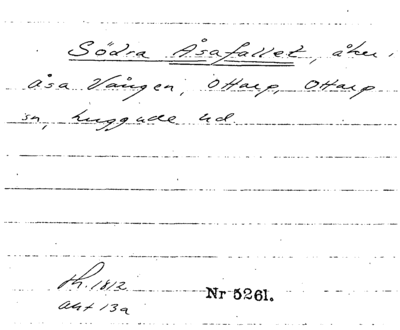 Södra Åsafallet, åker i
åsa Vången, Ottarp, Ottarp
sn, Luggude hd.
th. 1812
akt 13a
Nr 5261.